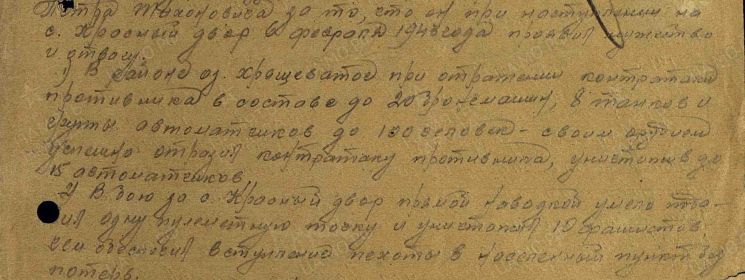 Петра Тихоновича за то, что он при наступлении на
с. Красный двор 6 февраля 1943 года проявил мужество
и отвагу.
1) В районе оз. Хрящеватое при отражении контратаки
противника в составе до 20 бронемашин, 8 танков и
группы автоматчиков до 100 человек - своим орудием
успешно отразил контратаку противника, уничтожив до
15 автоматчиков
2) В бою за с. Красный двор прямой наводкой умело
одну пулеметную точку и уничтожил 10 фашистов,
чем обеспечил вступление пехоты в населенный пункт без
потерь.